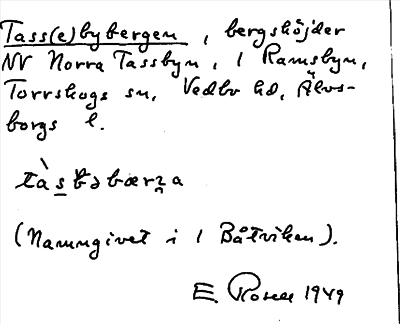 Tass(e)bybergen, bergshöjder
NV Norra Tassbyn, 1 Ramsbyn,
Torrskogs sn, Vedbo hd, Älvs-
borgs l.
(Namngivet i 1 Båtviken).
E. Rosell 1949